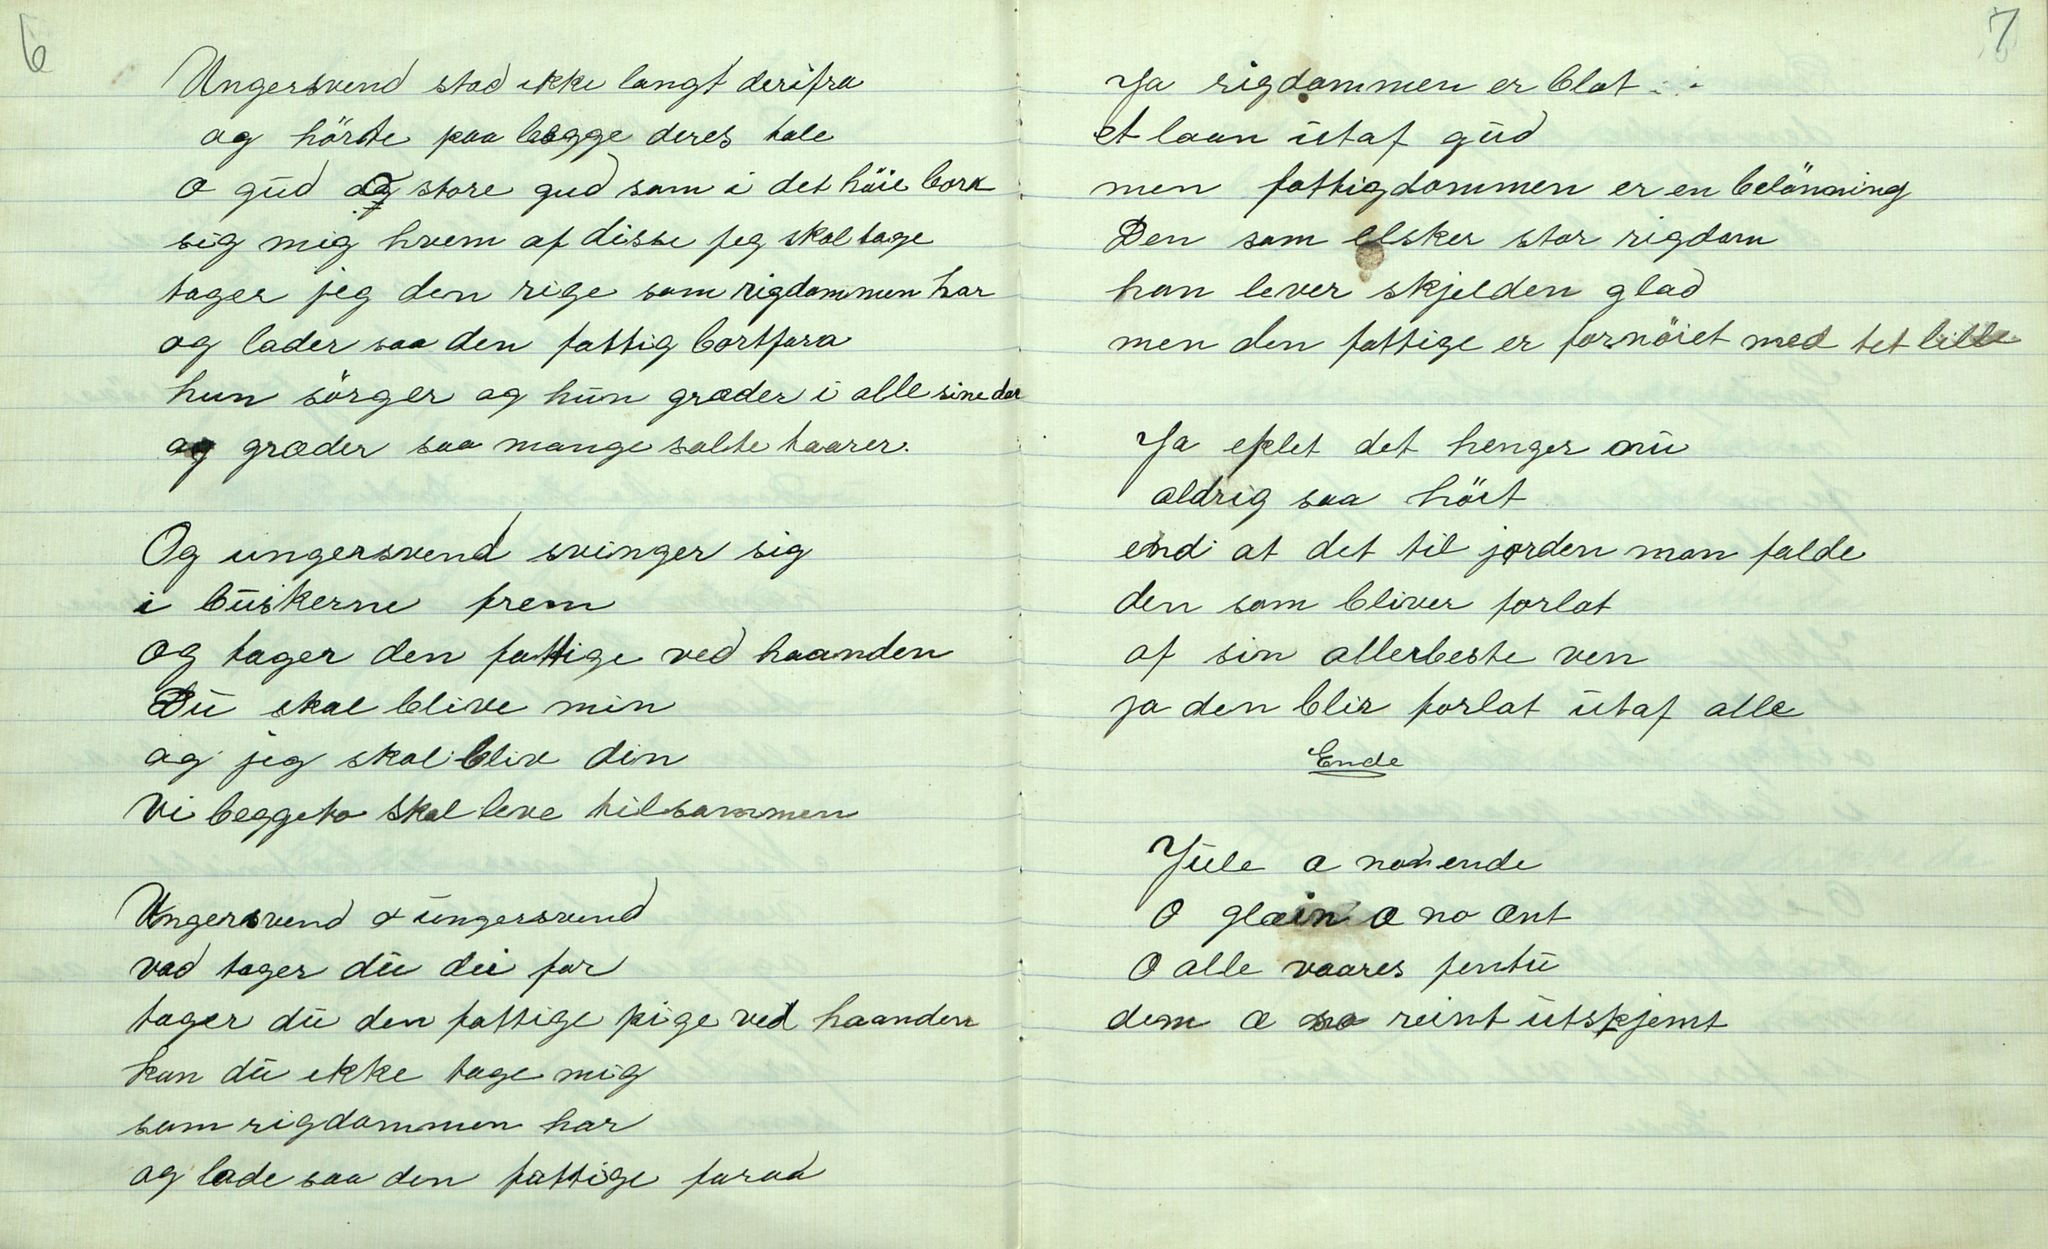 6
Ungersvend stod ikke langt derifra
og hörte paa begge deres tale
o gud og store gud som i det höie bor
sig mig hvem af disse jeg skal tage
tager jeg den rige som rigdommen har
og lader saa den fattig bortfara
hun sörger og hun græder i alle sine dar
og græder saa mange salte taarer.
Og ungersvend svinger sig
i buskerne frem
og tager den fattige ved haanden
Du skal blive min
og jeg skal bliv din
Vi beggeto skal leve tilsammen
Ungersvend o ungersvend
vad tager du dei for
tager du den fattige pige ved haanden
kan du ikke tage mig
som rigdommen har
og lade saa den fattige farad
7
Ja rigdommen er blot
et laan utaf gud
men fattigdommen er en belönning
Den som elsker stor rigdom
han lever skjelden glad
men den fattige er fornöiet med tet lille
Ja eplet det henger nu
aldrig saa höit
end at det til jorden man falde
den som bliver forlat
af sin allerbeste ven
ja den blir forlat utaf alle
Ende
Jule æ no ende
O glæin æ no ænt
O alle vaares fentu
dem æ no reint utskjemt